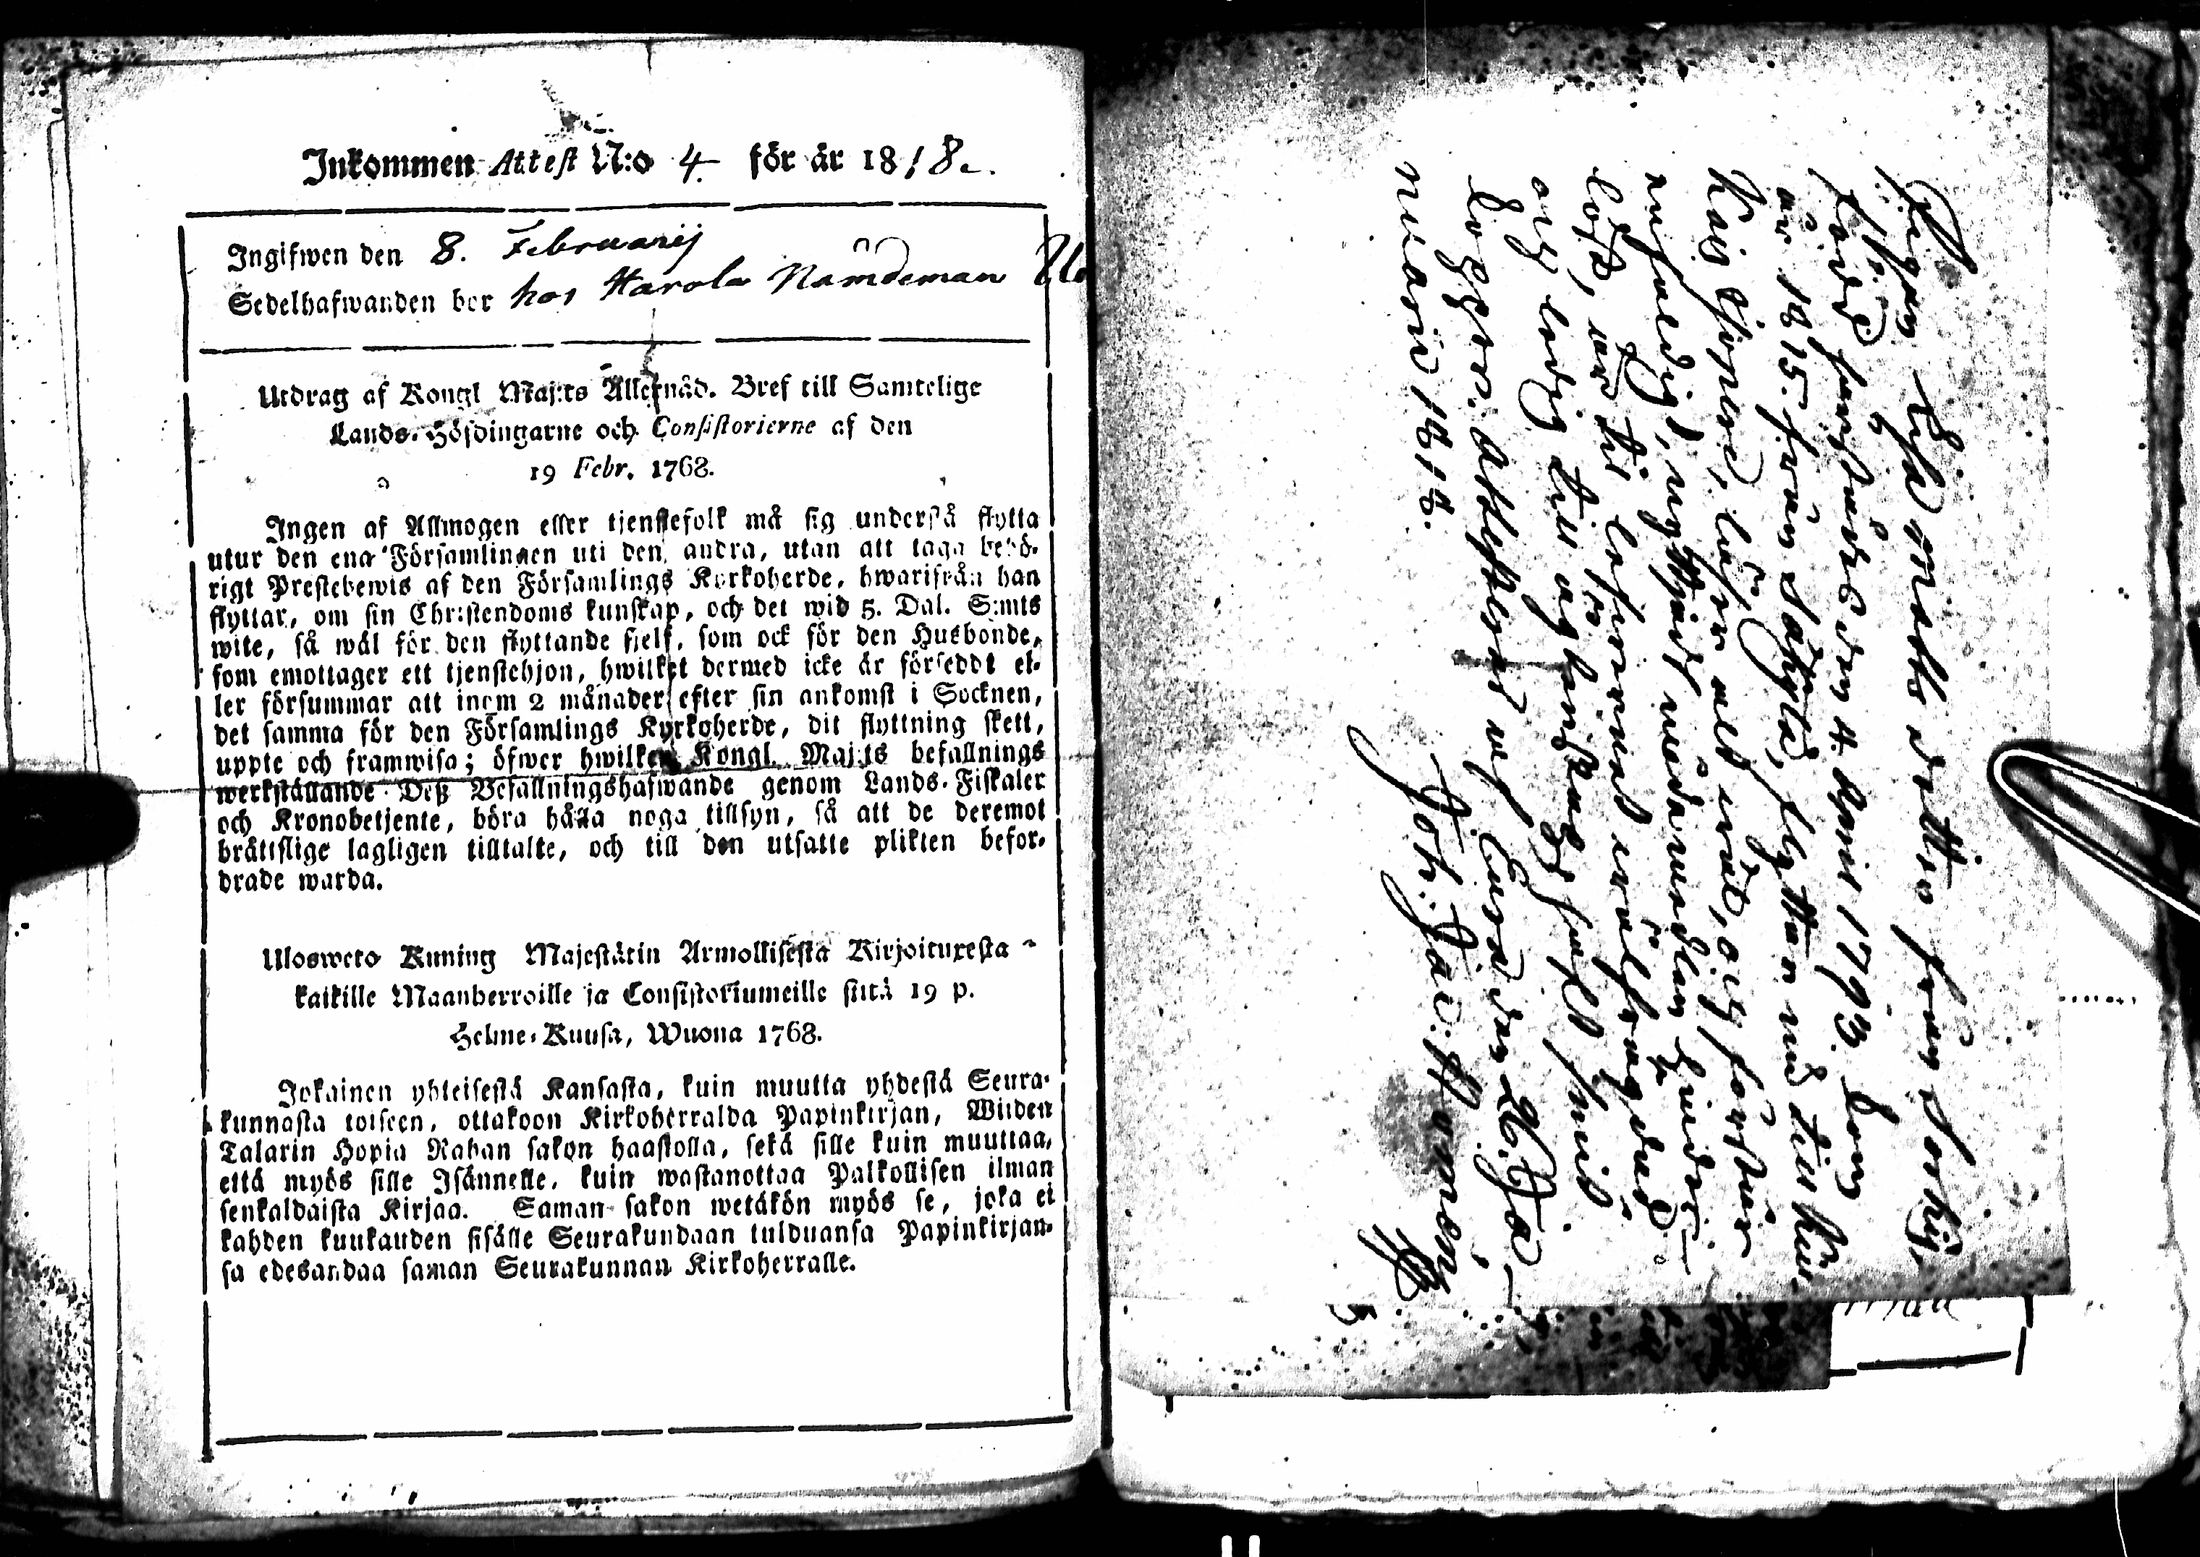 Inkommen Attest N:o 4. för år 1818.
Ingifwen den 8. Februarij
Sedelhafwanden bor hos Karola Nämdeman
Utdrag af Kongl Maj:ts Allernåd. Bref till Samtelige
Lands-Höfdingarne och Consistorierne af den
19 Febr. 1768.
Ingen af Allmogen eller tjenstefolk må sig understå flytta
utur den ena Församlingen uti den andra, utan att taga behö-
rigt Prestebewis af den Församlings Kyrkoherde, hwarifrån han
flyttar, om sin Christendoms kunskap, och det wid 5. Dal. S:mts
wite, så wäl för den flyttande sjelf, som ock för den Husbonde,
som emottager ett tjenstehjon, hwilket dermed icke är förseddt el-
ler försummar att inom 2 månader efter sin ankomst i Socknen,
det samma för den Församlings Kyrkoherde, dit flyttning skett,
uppte och framwisa; öfwer hwilken Kongl. Maj:ts befallnings
werkställande Deß Befallningshafwande genom Lands-Fiskaler
och Kronobetjente, böra hålla noga tillsyn, så att de deremot
bråttslige lagligen tilltalte, och till den utsatte plikten befor-
drade warda.
Ulosweto Kuning Majestätin Armollisesta Kirjoituxesta
kaikille Maanherroille ja Consistoriumeille siitä 19 p.
Helme-Kuusa, Wuona 1768.
Jokainen yhteisestä Kansasta, kuin muutta yhdestä Seura-
kunnasta toiseen, ottakoon Kirkoherralda Papinkirjan, Wiiden
Talarin Hopia Rahan sakon haastolla, sekä sille kuin muuttaa,
että myös sille Isännelle, kuin wastanottaa Palkollisen ilman
senkaldaista Kirjaa. Saman sakon wetäkön myös se, joka ei
kahden kuukauden sisälle Seurakundaan tulduansa Papinkirjan-
sa edesandaa saman Seurakunnan Kirkoherralle.
Pigan Lisa Matts dotter från Sorkij,
född härstädes den 4. April 1793. kom
år 1815. från flyttar nu till
läser alt inat, och förstår
nyttjat nådamedlen
är til lefvernet
och ledig till
attesterar af Eura den 26. Ja-
nuarii 1818.
Joh: Jac: